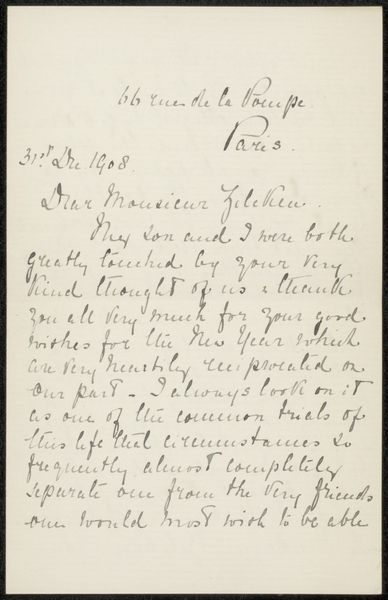 66 rue de la Pompe.
Paris.
31st Dec. 1908.
Dear Monsieur Zilcken.
My son and I were both
greatly touched by your very
kind thought of us & thank
you all very much for your good
wishes for the New Year which
are very heartily reciprocated on
our part – I always look on it
as one of the common trials of
this life that circumstances so
frequently almost completely
separate one from the very friends
one would most wish to be able